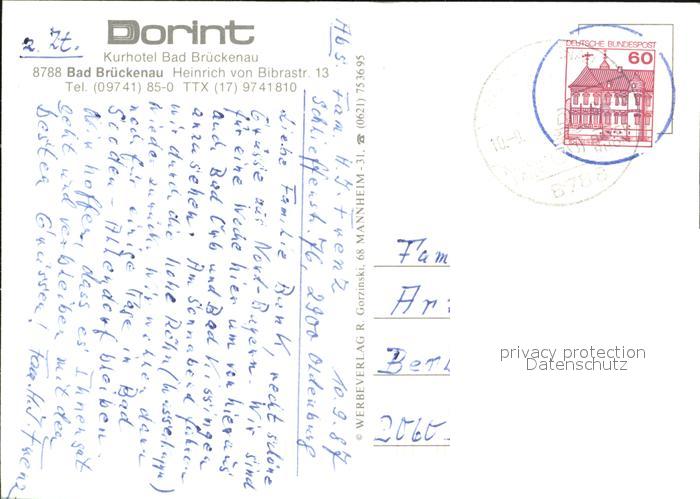 z. Zt.
Dorint
Kurhotel Bad Brückenau
8788 Bad Brückenau Heinrich von Bibrastr. 13
Tel. (09741) 85-0 TTX (17) 9741810
Abs: Fam. H. J. Frenz
Schlieffenstr. 76, 2900 Oldenburg
10.9.87
Liebe Familie Bunk, recht schöne
Grüsse aus Nord-Bayern. Wir sind
für eine Woche hier um von hier aus
auch Bad Orb und Bad Kissingen
anzusehen. Am Sonnabend fahren
wir durch die hohe Röhn (Wasserkuppe)
wieder zurück. Wir wollen dann
noch für einige Tage in Bad
Sooden-Allendorf bleiben.
Wir hoffen, dass es Ihnen gut
geht und verbleiben mit den
besten Grüssen! Fam. H. J. Frenz
© WERBEVERLAG R. Gorzinski, 68 MANNHEIM-31, ☎ (0621) 753695
DEUTSCHE BUNDESPOST
60
10.-9.
8788
Fam
Ar
Berl
2060
privacy protection
Datenschutz